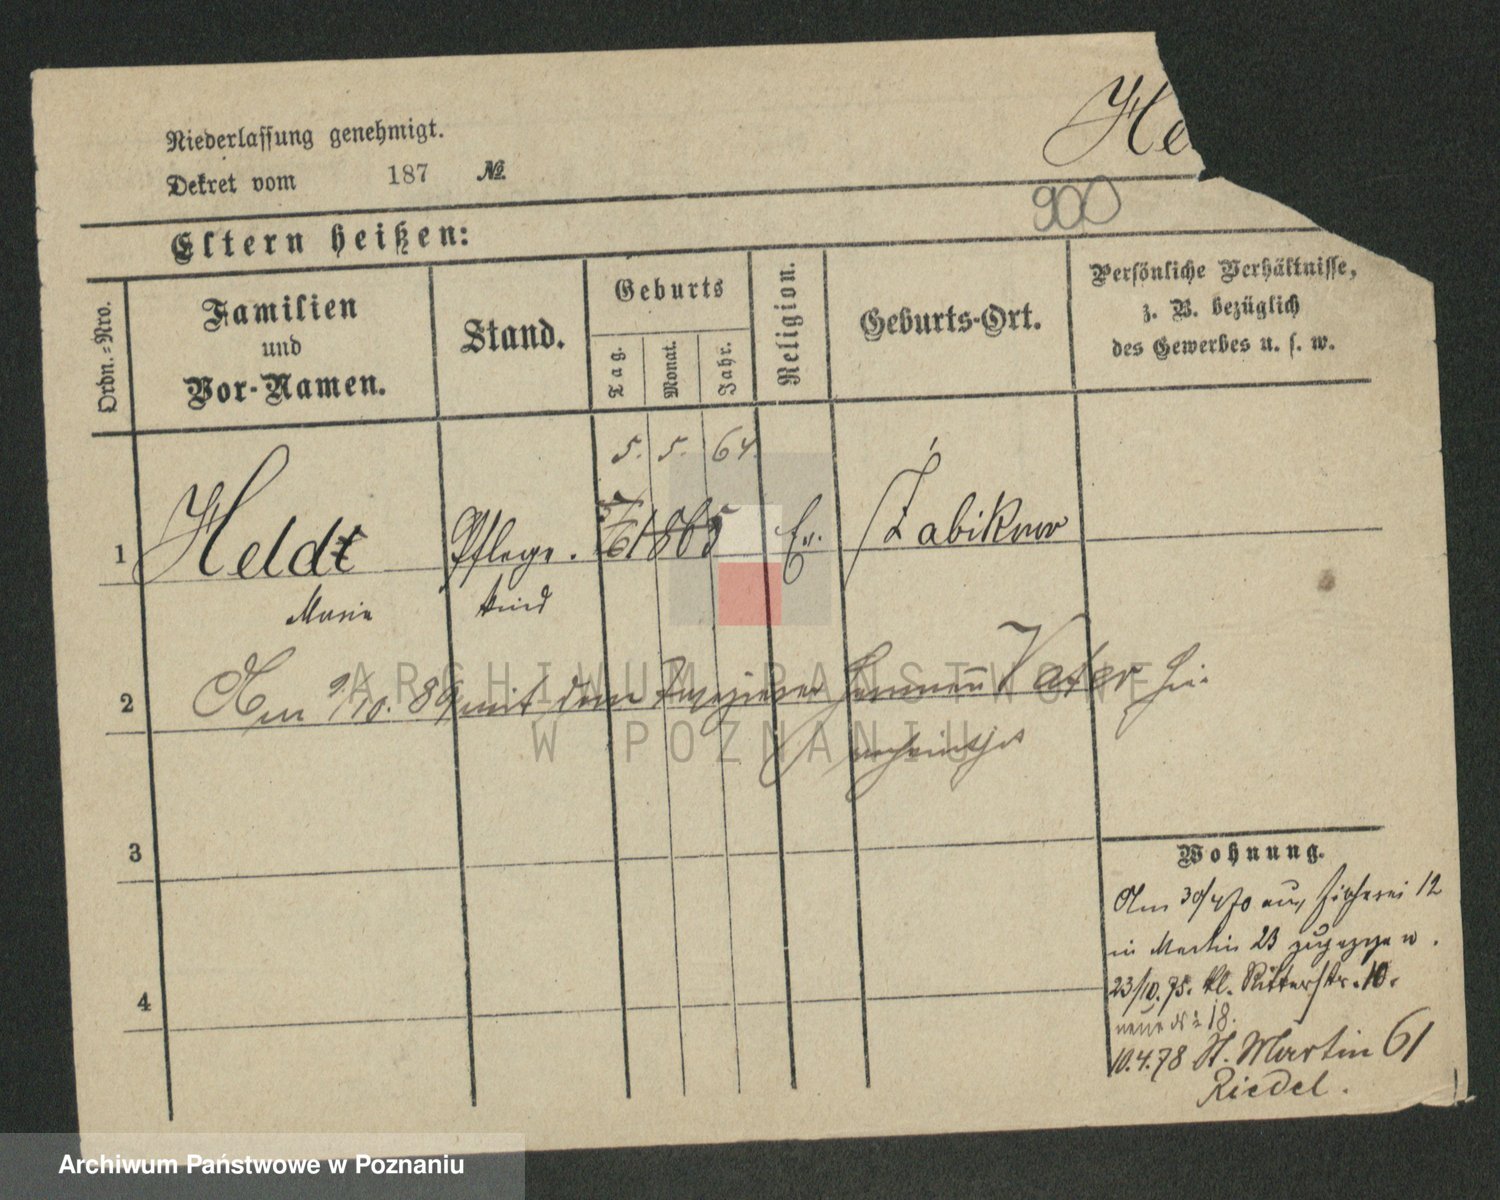 Niederlassung genehmigt.
He
Dekret vom 187 №
900
Eltern heißen:
Ordn.-Nro.
Familien
und
Vor-Namen.
Stand.
Geburts
Tag.
Monat.
Jahr.
Religion.
Geburts-Ort.
Persönliche Verhältnisse,
z. B. bezüglich
des Gewerbes u. s. w.
5. 5. 64.
1 Heldt Pflege. 1865 Ev. Żabikowo
Marie kind
2 Am 9/10. 89 mit dem Tapezierer Hermann Vater hier
verheirathet
ARCHIWUM PAŃSTWOWE
W POZNANIU
3
4
Wohnung.
Am 30/4 70 aus Fischerei 12
in Martin 23 zugezogen.
23/10. 75. kl. Ritterstr. 10.
neue № 18.
10.4.78 St. Martin 61
Riedel.
Archiwum Państwowe w Poznaniu